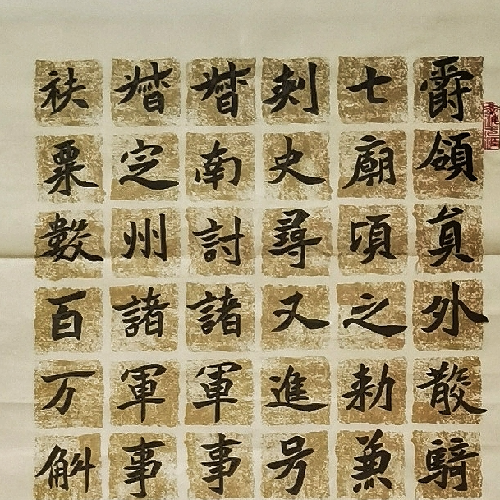 爵領員外散騎
七廟頃之勑兼
刾史尋又進号
督南討諸軍事
督定州諸軍事
袟粟數百万斛